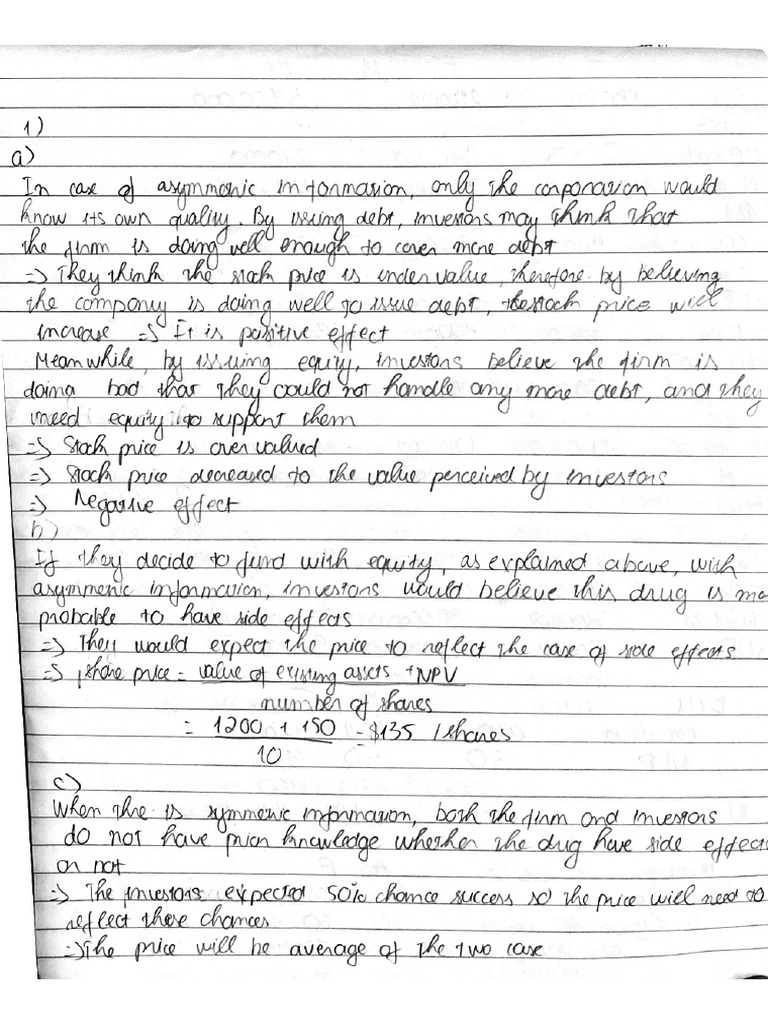 1)
a)
In case of asymmenic information, only the corporation would
know its own quality. By issuing debt, investors may think that
the firm is doing well enough to cover more debt
=> They think the stock price is undervalue, therefore by believing
the company is doing well to issue debt, the stock price will
increase => It is positive effect
Meanwhile, by issuing equity, investors believe the firm is
doing bad that they could not handle any more debt, and they
need equity to support them
=> Stock price is over valued
=> Stock price decreased to the value perceived by investors
=> Negative effect
b)
If they decide to fund with equity, as explained above, with
asymmenic information, investors would believe this drug is mo
probable to have side effects
=> They would expect the price to reflect the case of side effects
=> share price = value of existing assets + NPV
number of shares
= 1200 + 150 = $135 / shares
10
c)
When thre is symmenic information, both the firm and investors
do not have prior knowledge whether the drug have side effects
or not
=> The investors expected 50% chance success so the price will need to
reflect these chances
=> The price will be average of the two case